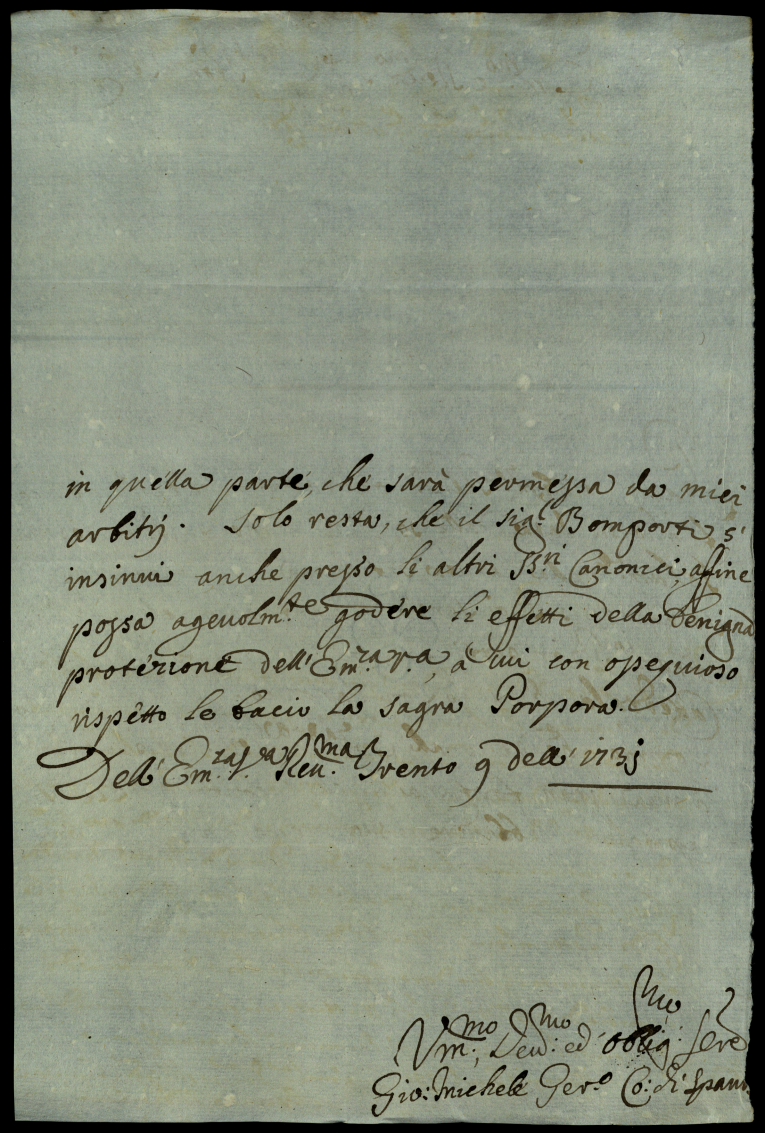 in quella parte, che sarà permessa da miei
arbitrij. Solo resta, che il sig.r Bomporti s'
insinui anche presso li altri SS.ri Canonici, affine
possa agevolm.te godere li effetti della benigna
protezione dell'Em.za V.a, a cui con ossequioso
rispetto le bacio la sagra Porpora.
Dell'Em.za V.a Rev.ma Trento 9 dell' 1731
Vm.mo, Dev.mo ed obblig.mo Serv.e
Gio: Michele Co: di Spaur